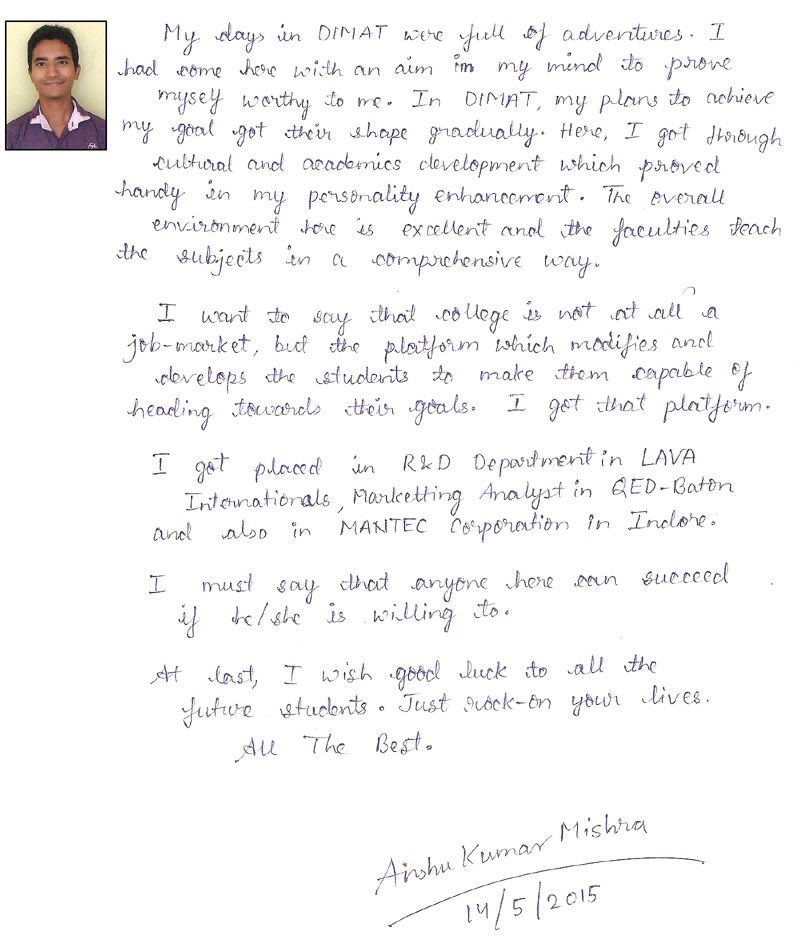 My days in DIMAT were full of adventures. I
had come here with an aim in my mind to prove
myself worthy to me. In DIMAT, my plans to achieve
my goal got their shape gradually. Here, I got through
cultural and academics development which proved
handy in my personality enhancement. The overall
environment here is excellent and the faculties teach
the subjects in a comprehensive way.
I want to say that college is not at all a
job-market, but the platform which modifies and
develops the students to make them capable of
heading towards their goals. I got that platform.
I got placed in R&D Department in LAVA
Internationals, Marketting Analyst in QED-Baton
and also in MANTEC Corporation in Indore.
I must say that anyone here can succeed
if he/she is willing to.
At last, I wish good luck to all the
future students. Just rock-on your lives.
All The Best.
Anshu Kumar Mishra
14/5/2015